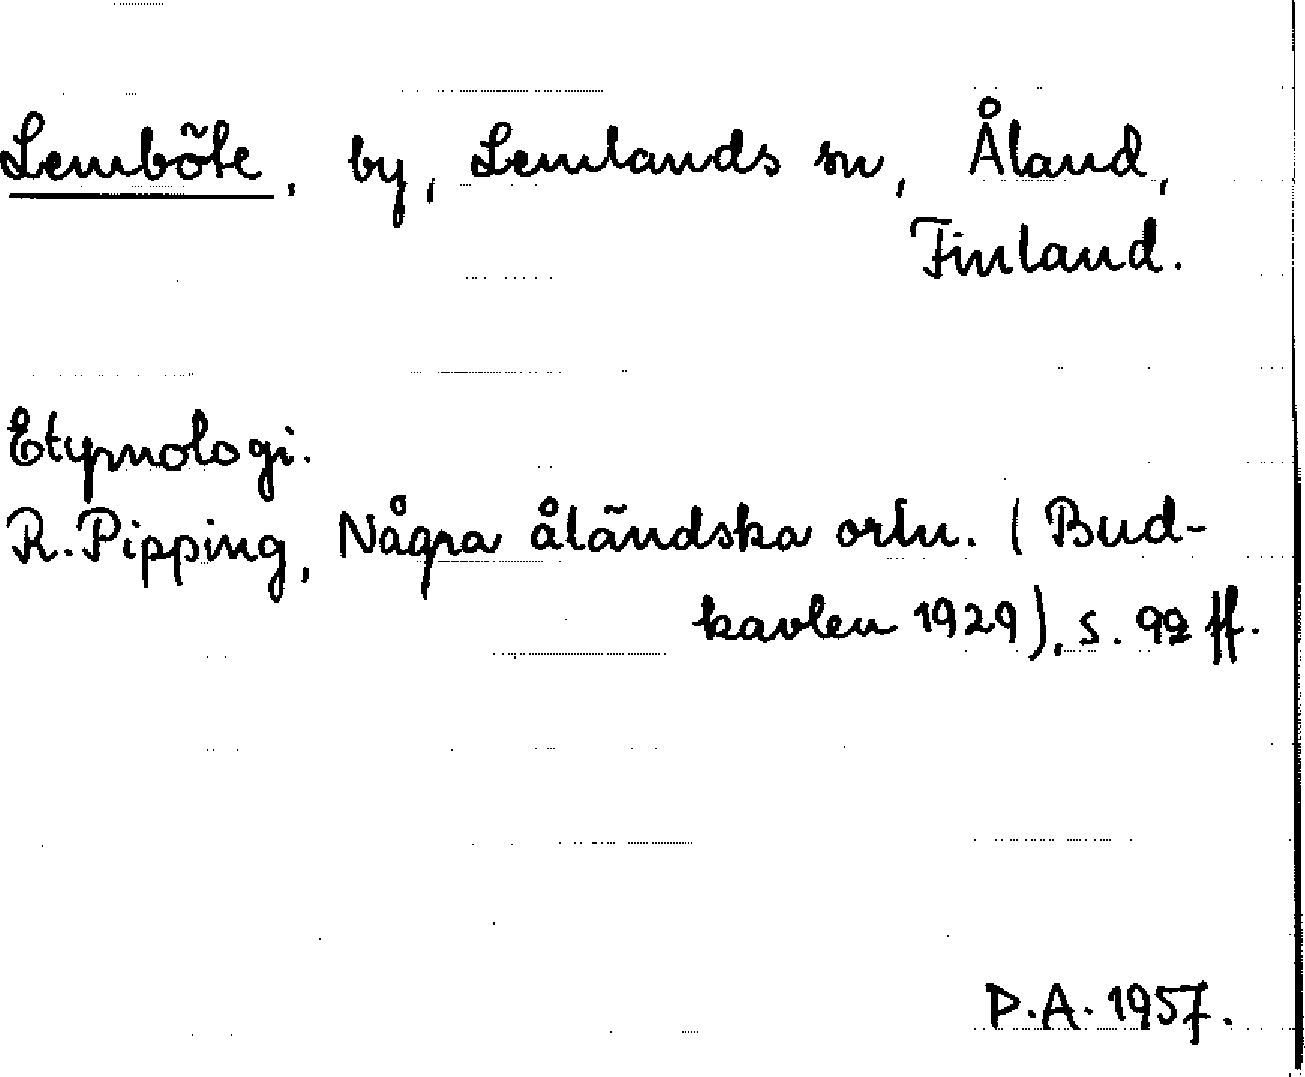 Lemböte, by, Lemlands sn, Åland,
Finland.
Etymologi.
R. Pipping, Några åländska ortn. (Bud-
kavlen 1929), s. 99 ff.
P.A. 1957.